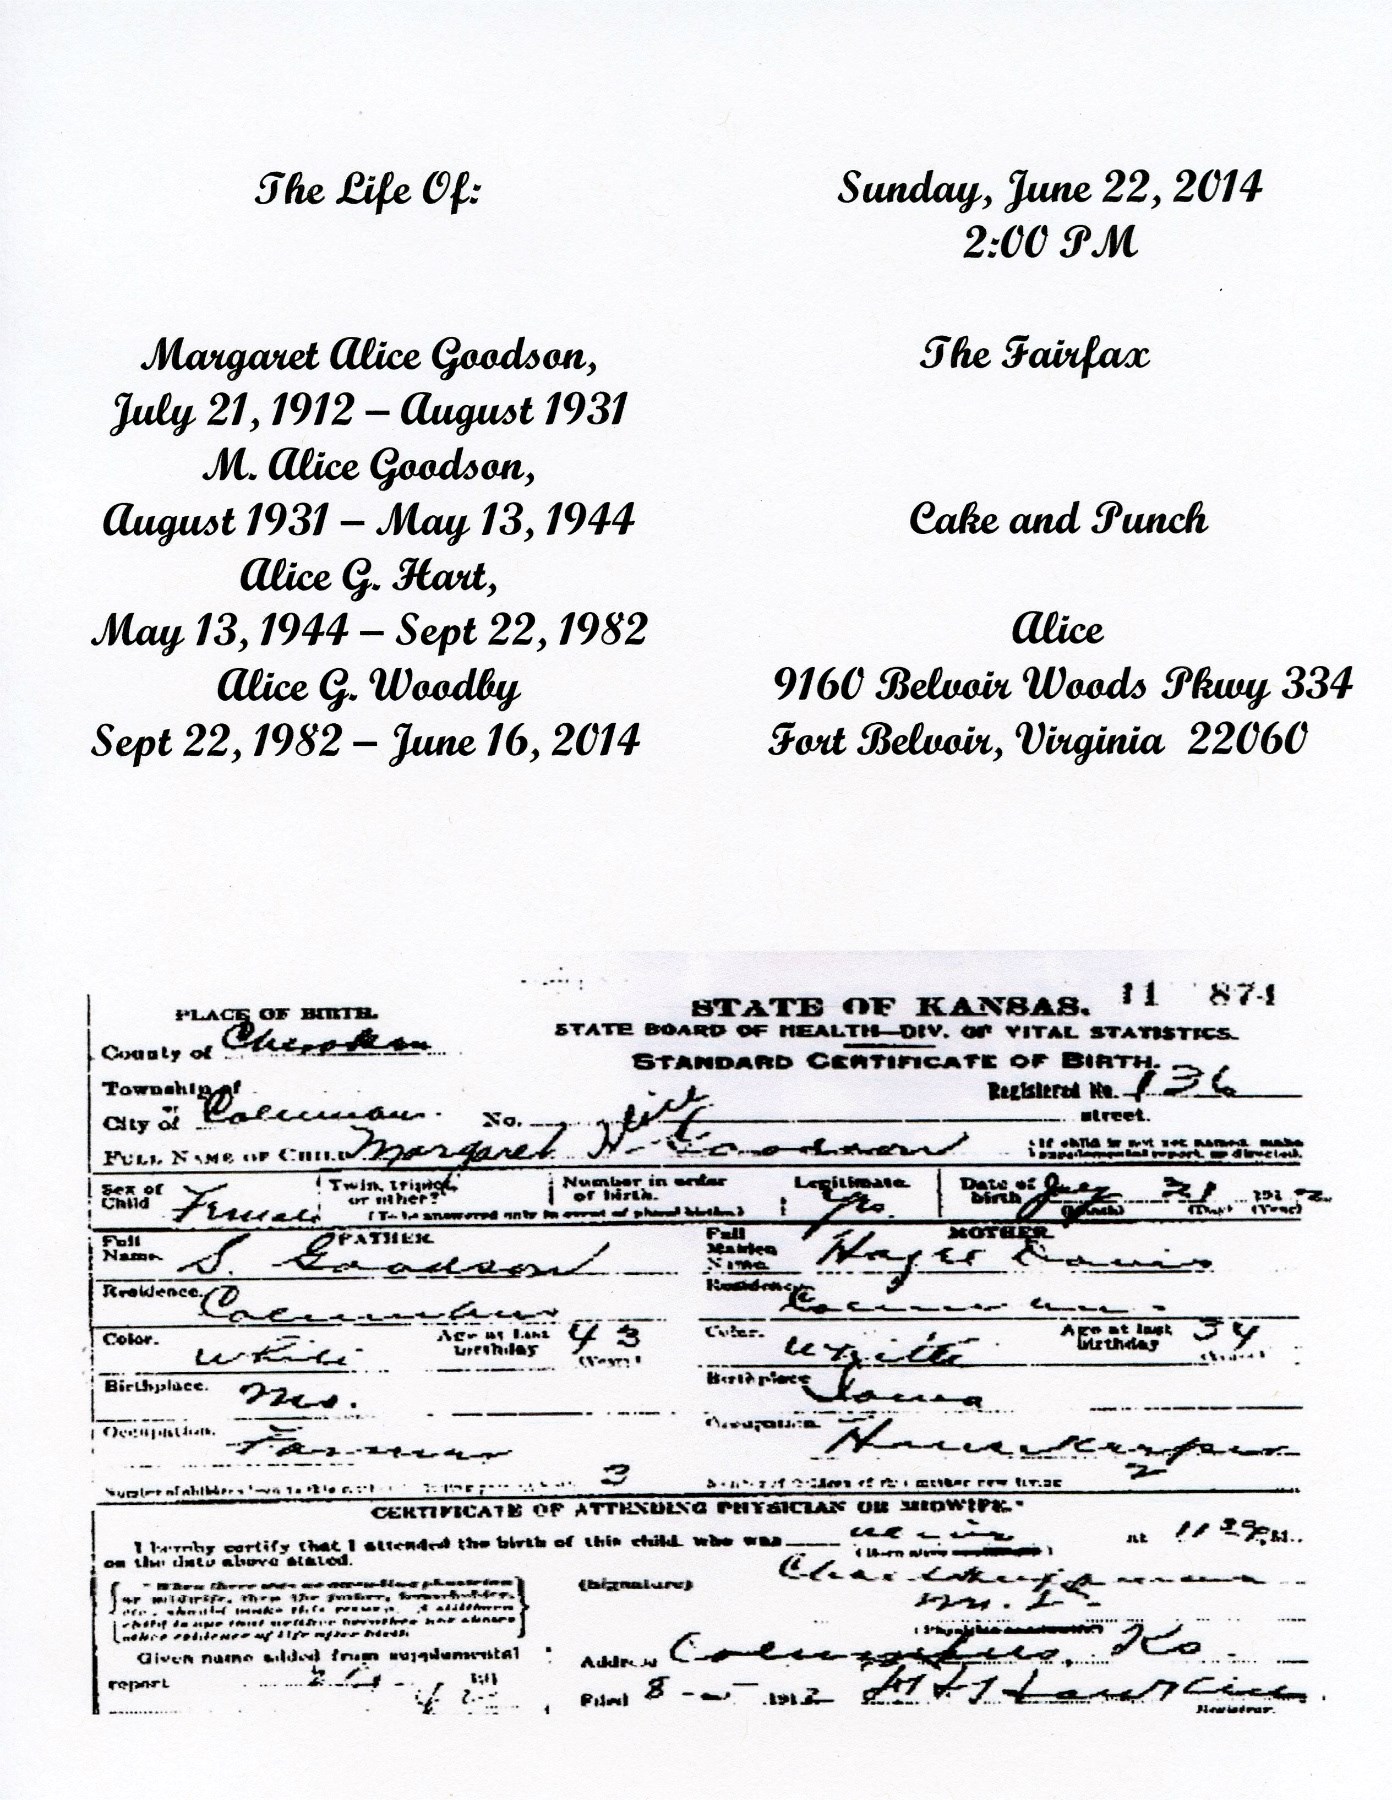 The Life Of:
Margaret Alice Goodson,
July 21, 1912 – August 1931
M. Alice Goodson,
August 1931 – May 13, 1944
Alice G. Hart,
May 13, 1944 – Sept 22, 1982
Alice G. Woodby
Sept 22, 1982 – June 16, 2014
Sunday, June 22, 2014
2:00 PM
The Fairfax
Cake and Punch
Alice
9160 Belvoir Woods Pkwy 334
Fort Belvoir, Virginia 22060
11 874
STATE OF KANSAS.
STATE BOARD OF HEALTH—DIV. OF VITAL STATISTICS.
STANDARD CERTIFICATE OF BIRTH.
PLACE OF BIRTH.
County of Cherokee
Township of
or
City of Columbus. No. street.
Registered No. 136
Alice
FULL NAME OF CHILD Margaret A. Goodson
If child is not yet named, make
supplemental report, as directed.
Sex of Child Female
Twin, triplet, or other?
Number in order of birth.
(To be answered only in event of plural births)
Legitimate. Yes.
Date of birth July 21 1912
(Month) (Day) (Year)
FATHER
Full Name. S. Goodson
MOTHER
Full Maiden Name. Davis
Residence. Columbus
Residence. Columbus
Color. White
Age at last birthday 43
(Years)
Color. White
Age at last birthday 34
Birthplace. Mo.
Birthplace Iowa
Occupation. Farmer
Occupation. Housekeeper
3
Number of children of this mother now living 2
CERTIFICATE OF ATTENDING PHYSICIAN OR MIDWIFE.*
I hereby certify that I attended the birth of this child, who was alive at 11 M.,
on the date above stated.
(Signature) Chas.
M. D.
When there was no attending physician
or midwife, then the father, householder,
etc., should make this return. A stillborn
child is one that neither breathes nor shows
other evidence of life after birth
Given name added from supplemental
report
Address Columbus, Ks.
Filed 8 - 1912
Registrar.